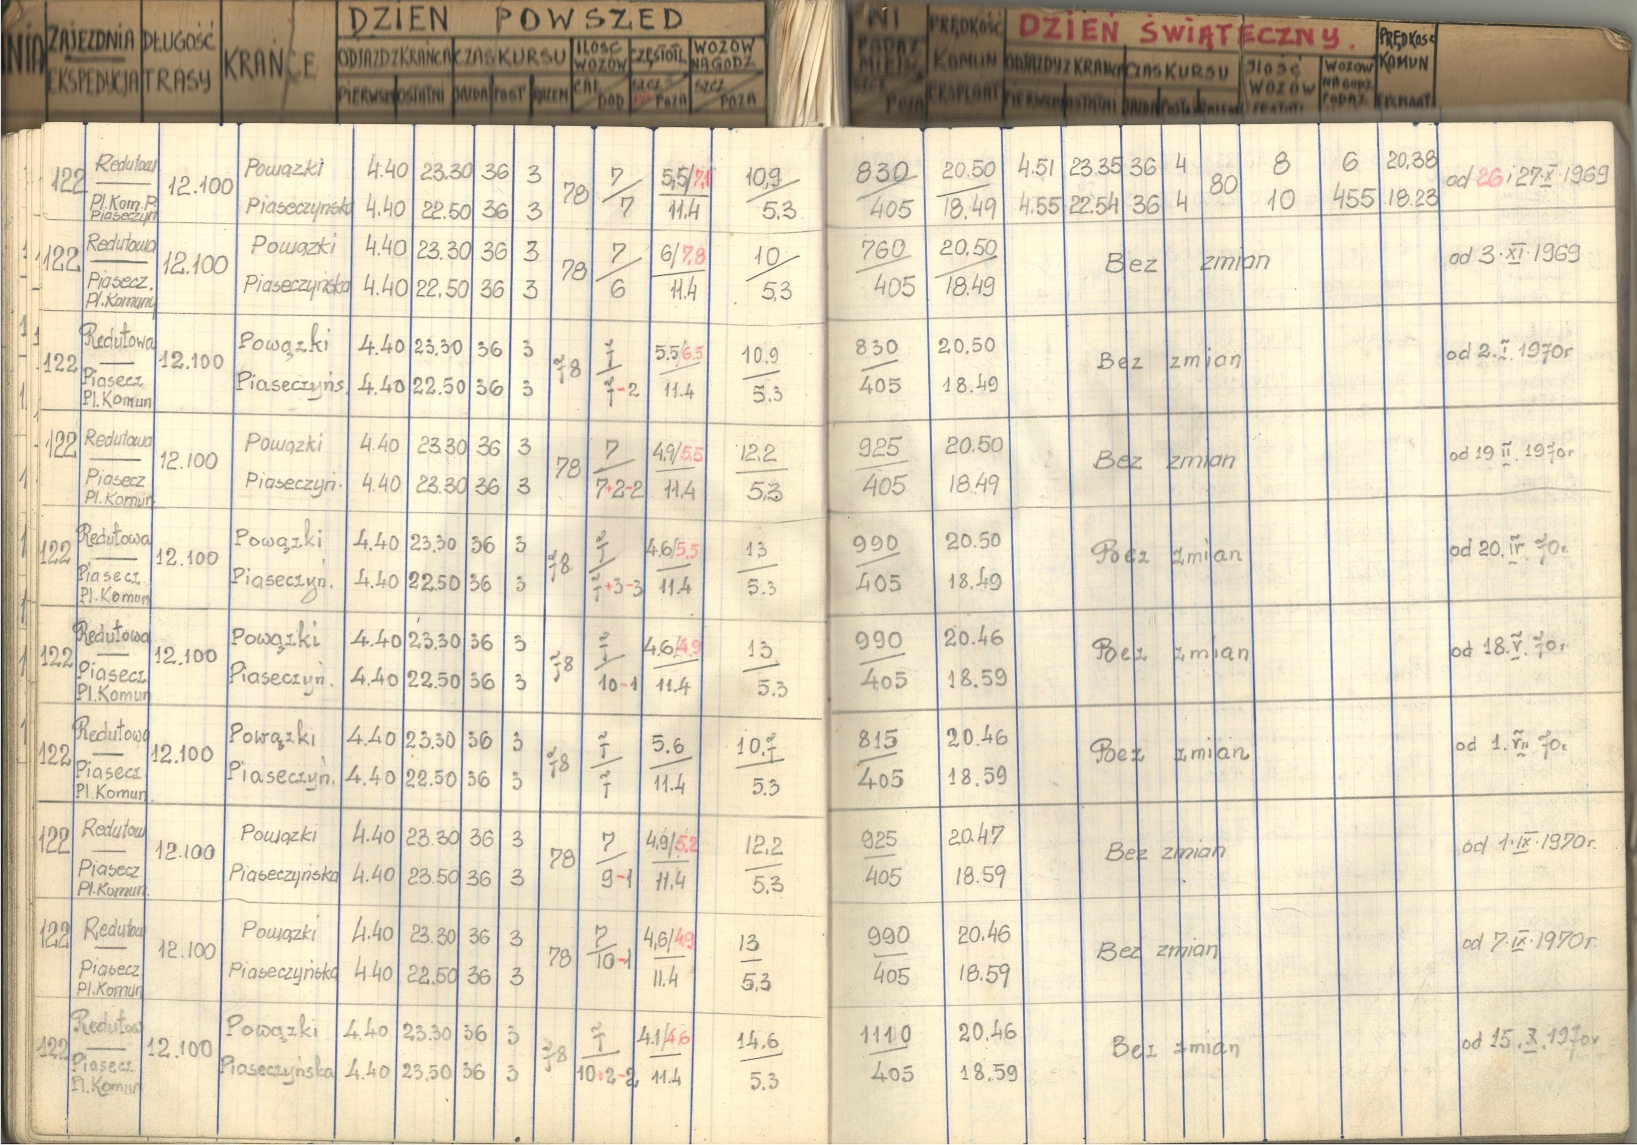 DZIEŃ POWSZED
ZAJEZDNIA DŁUGOŚĆ KRAŃCE ODJAZD Z KRAŃCA CZAS KURSU ILOŚĆ WOZÓW CZĘSTOTL. WOZÓW NA GODZ
EKSPEDYCJA TRASY PIERWSZY OSTATNI JAZDA POST RAZEM CAŁ DOD SZCZ POZA SZCZ POZA
NI PRĘDKOŚĆ DZIEŃ ŚWIĄTECZNY. PRĘDKOŚĆ
KOMUN ODJAZDY Z KRAŃCA CZAS KURSU ILOŚĆ WOZÓW WOZÓW NA GODZ KOMUN
POZA EKSPLOAT PIERWSZY OSTATNI JAZDA POST EKSPLOAT
122 Redutow 12.100 Powązki 4.40 23.30 36 3 78 7 5,5/7,1 10,9 830 20.50 4.51 23.35 36 4 80 8 6 20,38 od 26 i 27·X·1969
Pl.Kom.P. Piaseczyń Piaseczyńska 4.40 22.50 36 3 7 11.4 5.3 405 18.49 4.55 22.54 36 4 10 455 18.23
122 Redutowa 12.100 Powązki 4.40 23.30 36 3 78 7 6/7,8 10 760 20.50 Bez zmian od 3·XI·1969
Piasecz. Pl.Komuny Piaseczyńska 4.40 22.50 36 3 6 11.4 5.3 405 18.49
122 Redutowa 12.100 Powązki 4.40 23.30 36 3 78 7 5.5/6.5 10.9 830 20.50 Bez zmian od 2.I.1970r
Piasecz Pl.Komun Piaseczyńs. 4.40 22.50 36 3 7-2 11.4 5.3 405 18.49
122 Redutowa 12.100 Powązki 4.40 23.30 36 3 78 7 4,9/5,5 12,2 925 20.50 Bez zmian od 19 II. 1970r
Piasecz Pl.Komun Piaseczyń. 4.40 23.30 36 3 7+2-2 11.4 5,3 405 18.49
122 Redutowa 12.100 Powązki 4.40 23.30 36 3 78 7 4.6/5.5 13 990 20.50 Bez zmian od 20.IV.70r.
Piasecz Pl.Komun Piaseczyń. 4.40 22.50 36 3 7+3-3 11.4 5.3 405 18.49
122 Redutowa 12.100 Powązki 4.40 23.30 36 3 78 7 4.6/4.9 13 990 20.46 Bez zmian od 18.V.70r.
Piasecz Pl.Komun Piaseczyń. 4.40 22.50 36 3 10-1 11.4 5.3 405 18.59
122 Redutowa 12.100 Powązki 4.40 23.30 36 3 78 7 5.6 10.7 815 20.46 Bez zmian od 1.VII 70r.
Piasecz Pl.Komun Piaseczyń. 4.40 22.50 36 3 7 11.4 5.3 405 18.59
122 Redutow 12.100 Powązki 4.40 23.30 36 3 78 7 4,9/5,2 12,2 925 20.47 Bez zmian od 1·IX·1970r.
Piasecz Pl.Komun. Piaseczyńska 4.40 23.50 36 3 9-1 11.4 5,3 405 18.59
122 Redutow 12.100 Powązki 4.40 23.30 36 3 78 7 4,6/4,9 13 990 20.46 Bez zmian od 7·IX·1970r.
Piasecz Pl.Komun Piaseczyńska 4.40 22.50 36 3 10-1 11.4 5,3 405 18.59
122 Redutow 12.100 Powązki 4.40 23.30 36 3 78 7 4.1/4.6 14.6 1110 20.46 Bez zmian od 15.X.1970r
Piasecz Pl.Komun Piaseczyńska 4.40 23.50 36 3 10+2-2 11.4 5.3 405 18.59